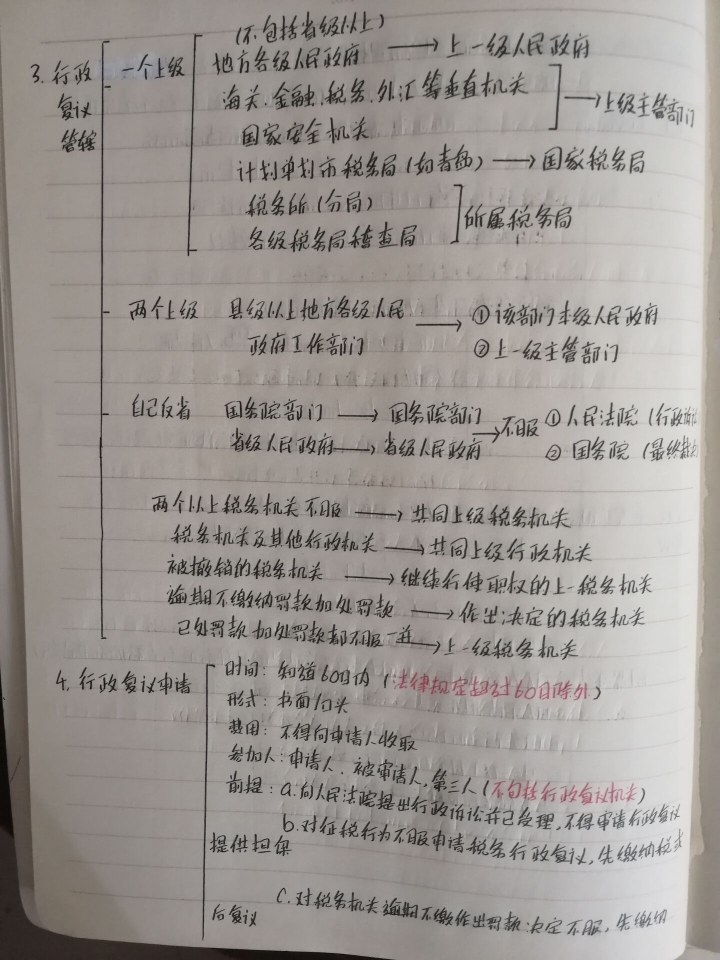 (不包括省级以上)
3. 行政复议管辖 一个上级 地方各级人民政府 → 上一级人民政府
海关、金融、税务、外汇等垂直机关
国家安全机关 → 上级主管部门
计划单列市税务局(如青岛) → 国家税务局
税务所(分局)
各级税务局稽查局 所属税务局
两个上级 县级以上地方各级人民 → ①该部门本级人民政府
政府工作部门 ②上一级主管部门
自己反省 国务院部门 → 国务院部门 → 不服 ①人民法院(行政诉讼
省级人民政府 → 省级人民政府 ②国务院(最终裁决
两个以上税务机关不服 → 共同上级税务机关
税务机关及其他行政机关 → 共同上级行政机关
被撤销的税务机关 → 继续行使职权的上一税务机关
逾期不缴纳罚款加处罚款 → 作出决定的税务机关
已处罚款加处罚款都不服一并 → 上一级税务机关
4. 行政复议申请 时间:知道60日内(法律规定超过60日除外)
形式:书面/口头
费用:不得向申请人收取
参加人:申请人、被申请人、第三人(不包括行政复议机关)
前提:a.向人民法院提出行政诉讼并已受理,不得申请行政复议
b.对征税行为不服申请税务行政复议,先缴纳税或
提供担保
c.对税务机关逾期不缴作出罚款决定不服,先缴纳
后复议